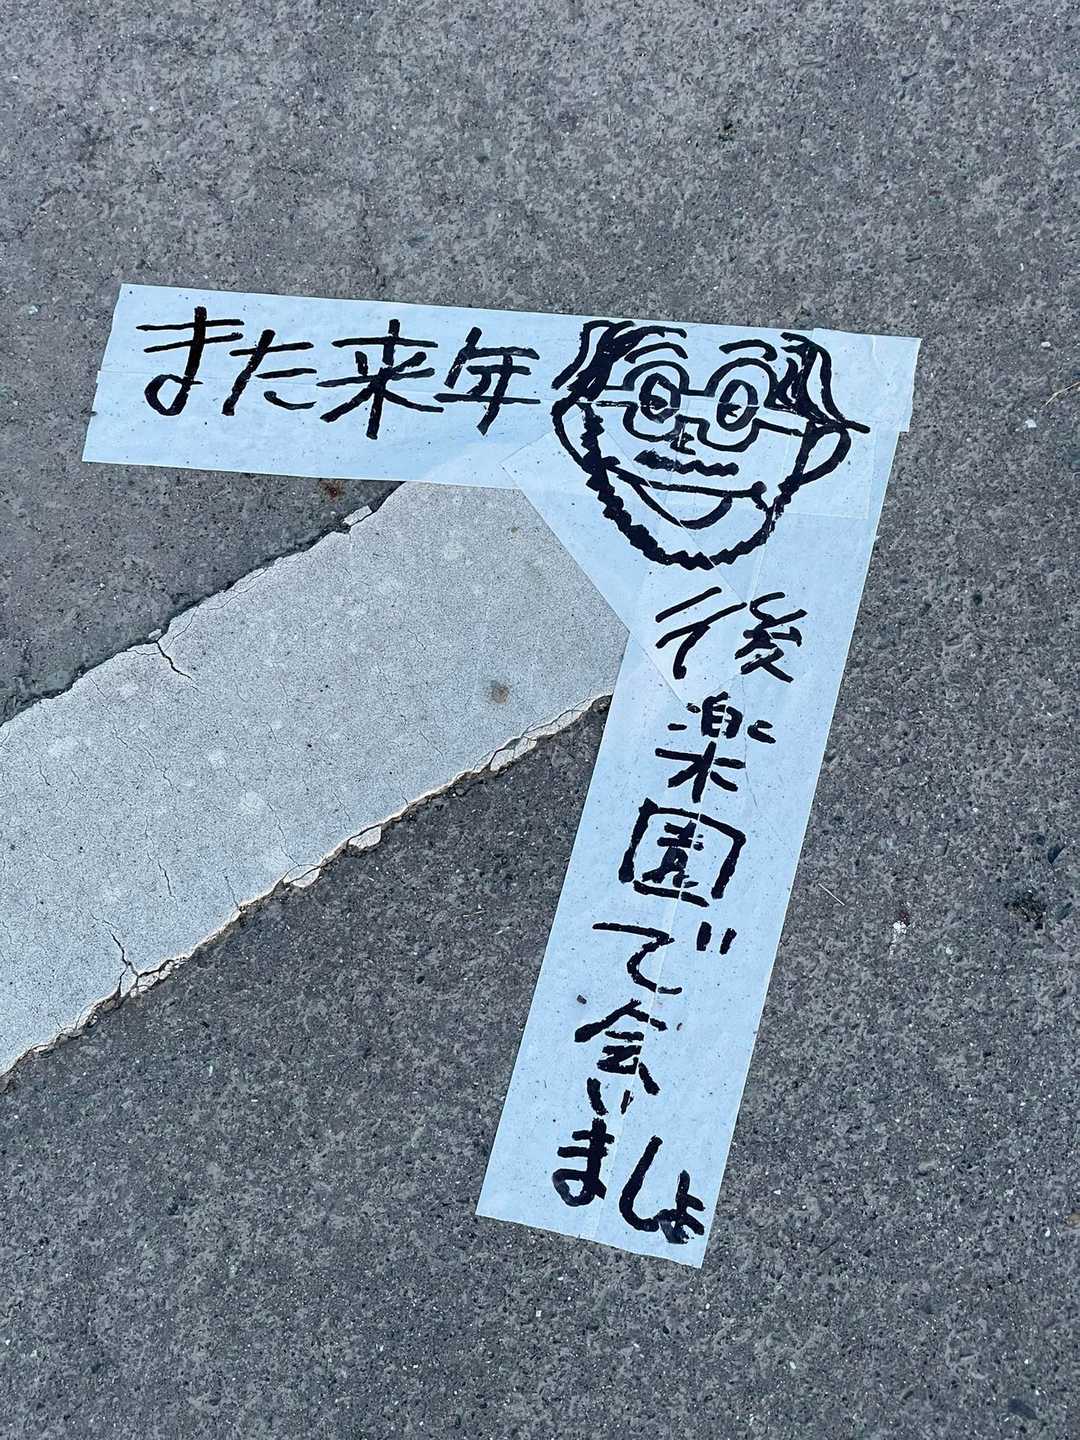 また来年
後楽園で会いましょ